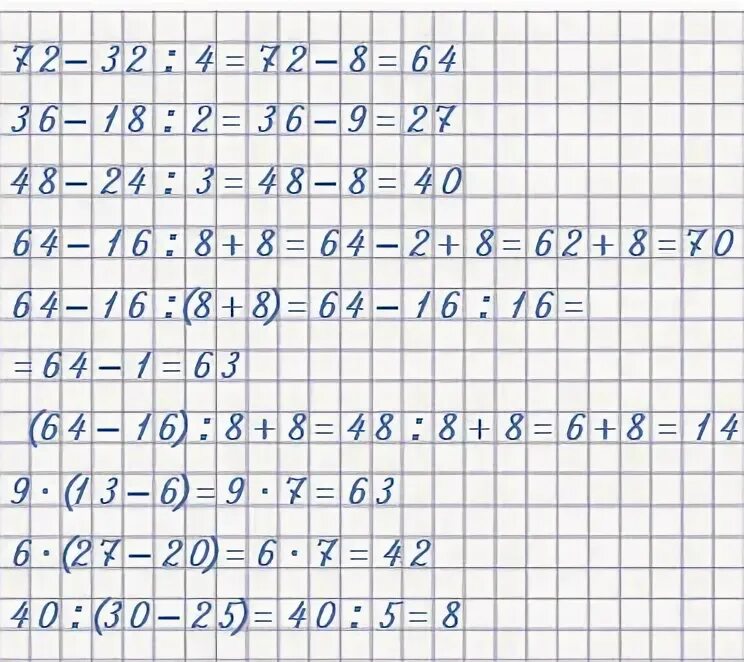 72 - 32 : 4 = 72 - 8 = 64
36 - 18 : 2 = 36 - 9 = 27
48 - 24 : 3 = 48 - 8 = 40
64 - 16 : 8 + 8 = 64 - 2 + 8 = 62 + 8 = 70
64 - 16 : (8 + 8) = 64 - 16 : 16 =
= 64 - 1 = 63
(64 - 16) : 8 + 8 = 48 : 8 + 8 = 6 + 8 = 14
9 · (13 - 6) = 9 · 7 = 63
6 · (27 - 20) = 6 · 7 = 42
40 : (30 - 25) = 40 : 5 = 8